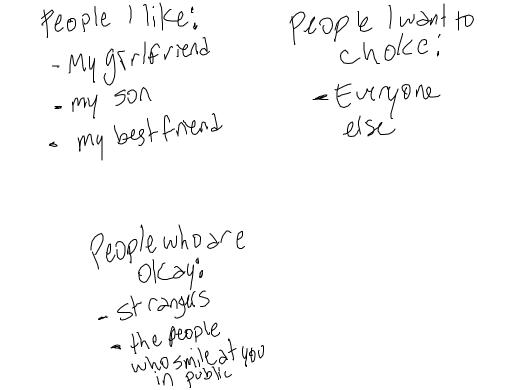 People I like:
- My girlfriend
- my son
- my best friend
People I want to
choke:
- Everyone
else
People who are
okay:
- strangers
- the people
who smile at you
in public